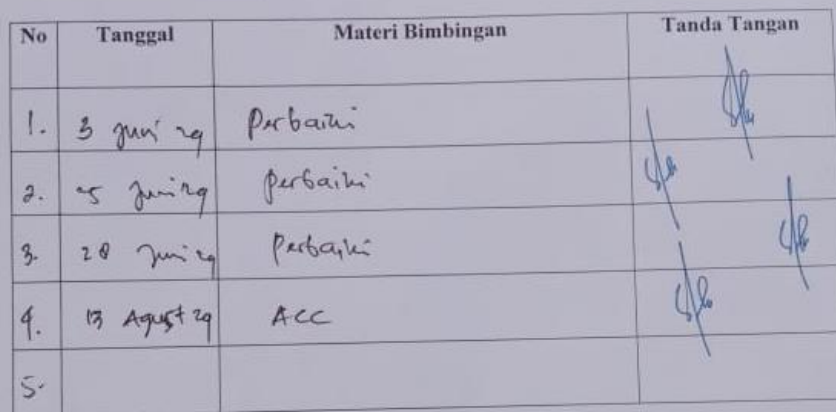 No Tanggal Materi Bimbingan Tanda Tangan
1. 3 Juni 24 Perbaiki
2. 25 Juni 24 Perbaiki
3. 28 Juni 24 Perbaiki
4. 13 Agust 24 ACC
5.